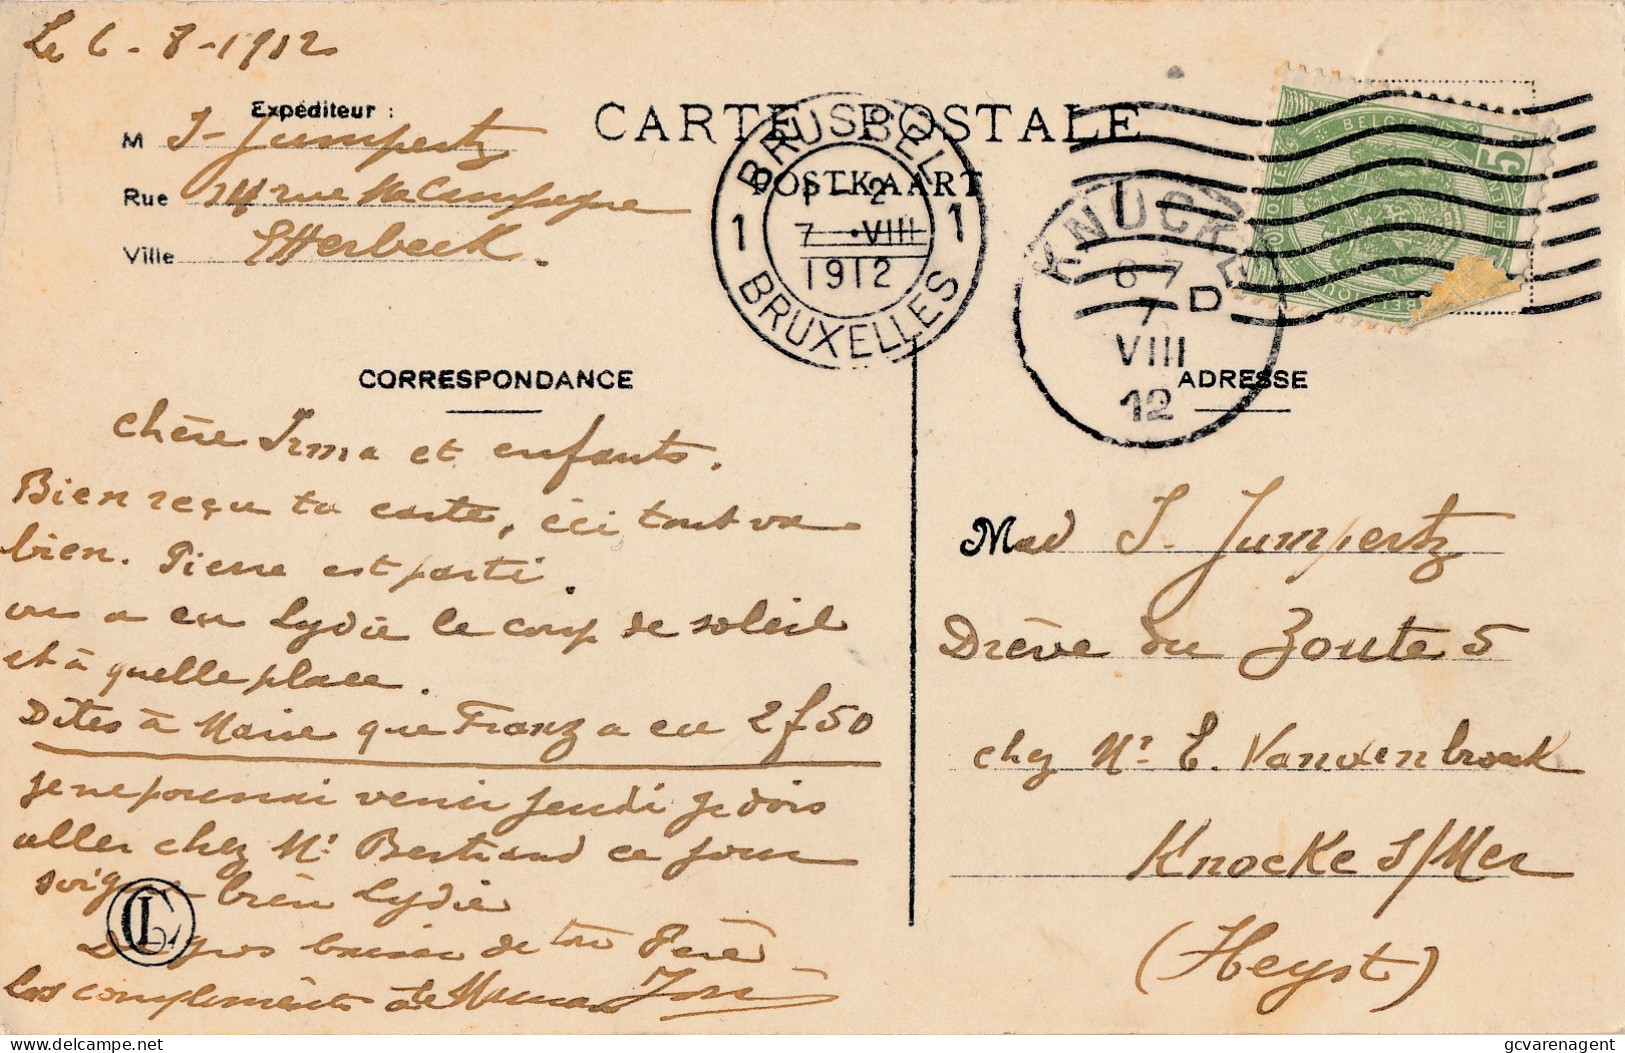 Le 6-8-1912
Expéditeur :
M J- Jumpertz
Rue 14 rue
Ville Etterbeeck.
CARTE POSTALE
POSTKAART
BRUSSEL 1
1 BRUXELLES
1-2
7 ·VIII
1912
KNOCKE
8-7
D
7
VIII
12
BELGIQUE
5
CORRESPONDANCE
ADRESSE
Chère Irma et enfants.
Bien reçu ta carte, ici tout va
bien. Pierre est parti.
ou a eu Lydie le coup de soleil
et à quelle place.
Dites à Marie que Franz a eu 2f50
je ne pourrai venir jeudi je dois
aller chez Mr Bertrand ce jour
soigne bien Lydie
De gros baiser de ton Père
Les compliments de José
CL
Mad J. Jumpertz
Drève du Zoute 5
chez Mr E. Vandenbroeck
Knocke S/Mer
(Heyst)
gcvarenagent